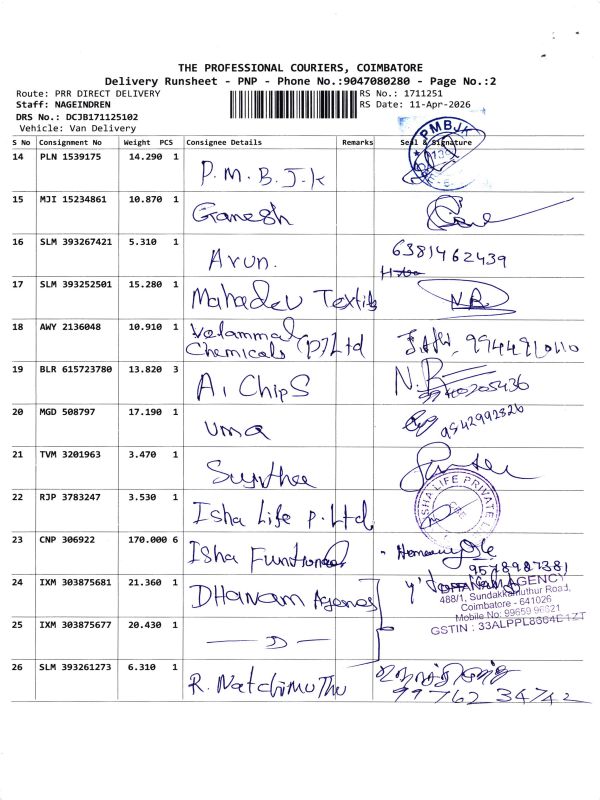 THE PROFESSIONAL COURIERS, COIMBATORE
Delivery Runsheet - PNP - Phone No.:9047080280 - Page No.:2
Route: PRR DIRECT DELIVERY
RS No.: 1711251
Staff: NAGEINDREN
RS Date: 11-Apr-2026
DRS No.: DCJB171125102
Vehicle: Van Delivery
S No Consignment No Weight PCS Consignee Details Remarks Seal & Signature
PMBJK
14 PLN 1539175 14.290 1 P.M.B.J.K
15 MJI 15234861 10.870 1 Ganesh
16 SLM 393267421 5.310 1 Arun. 6381462439
17 SLM 393252501 15.280 1 Mahadev Textils N.R
18 AWY 2136048 10.910 1 Velammal
Chemicals (P) Ltd
19 BLR 615723780 13.820 3 A1 Chips
20 MGD 508797 17.190 1 uma 9542992826
21 TVM 3201963 3.470 1
22 RJP 3783247 3.530 1 Isha Life P. Ltd
ISHA LIFE PRIVATE L
23 CNP 306922 170.000 6 Isha
9578987381
24 IXM 303875681 21.360 1 DHANAM Agency
DHANAM AGENCY
488/1, Sundakkamuthur Road,
Coimbatore - 641026
Mobile No: 99659 96621
25 IXM 303875677 20.430 1 — D —
GSTIN : 33ALPPL8664E1ZT
26 SLM 393261273 6.310 1 R. Natchimuthu
99762 34742